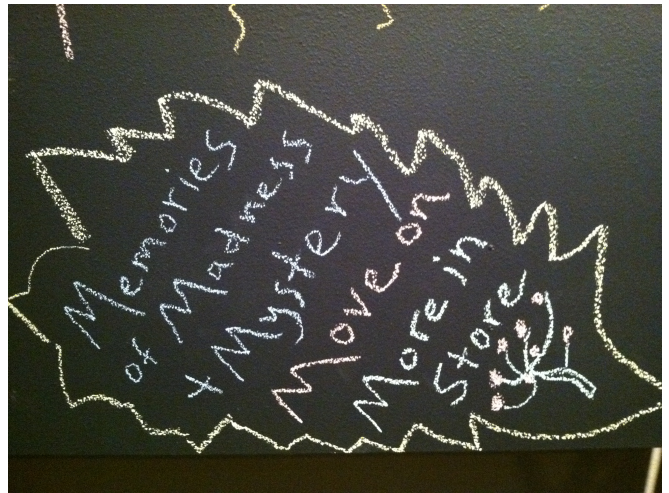 Memories
of Madness
+ Mystery
Move on
More in
Store